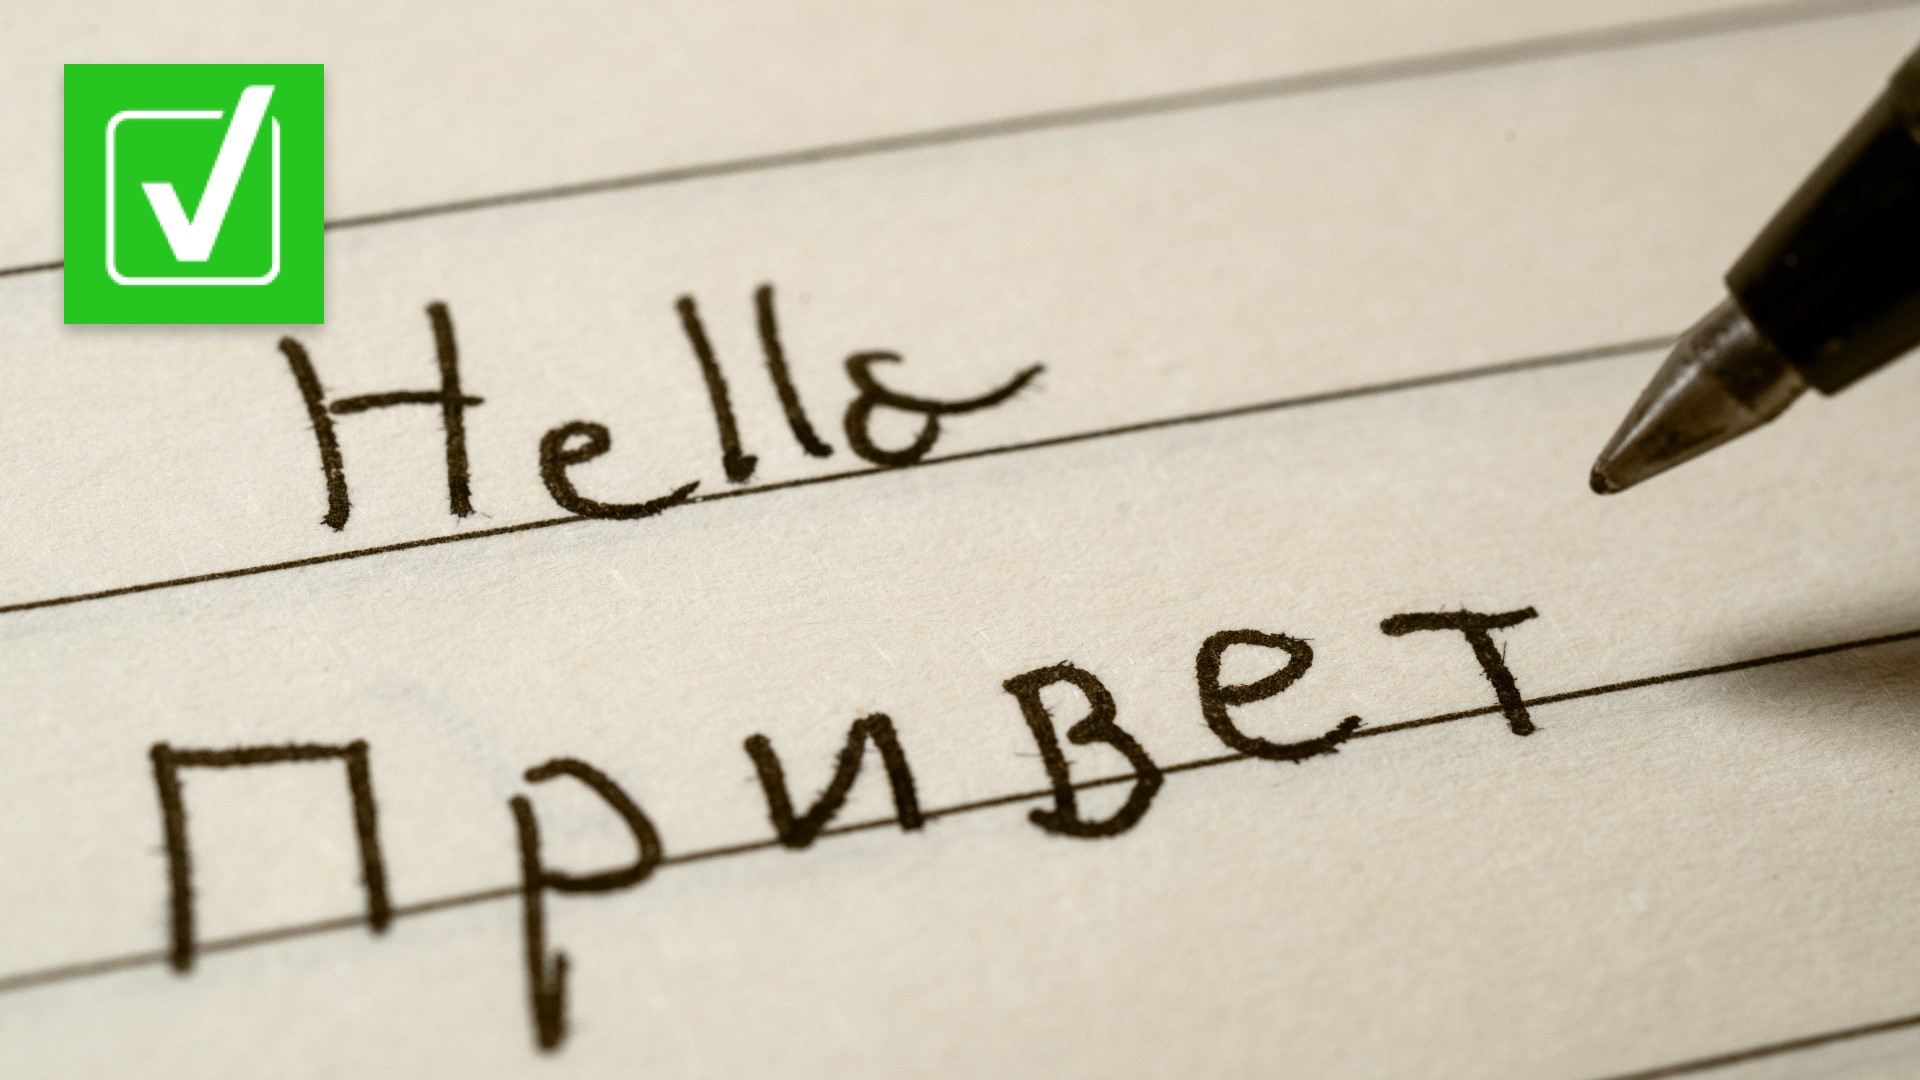 Hello
Привет